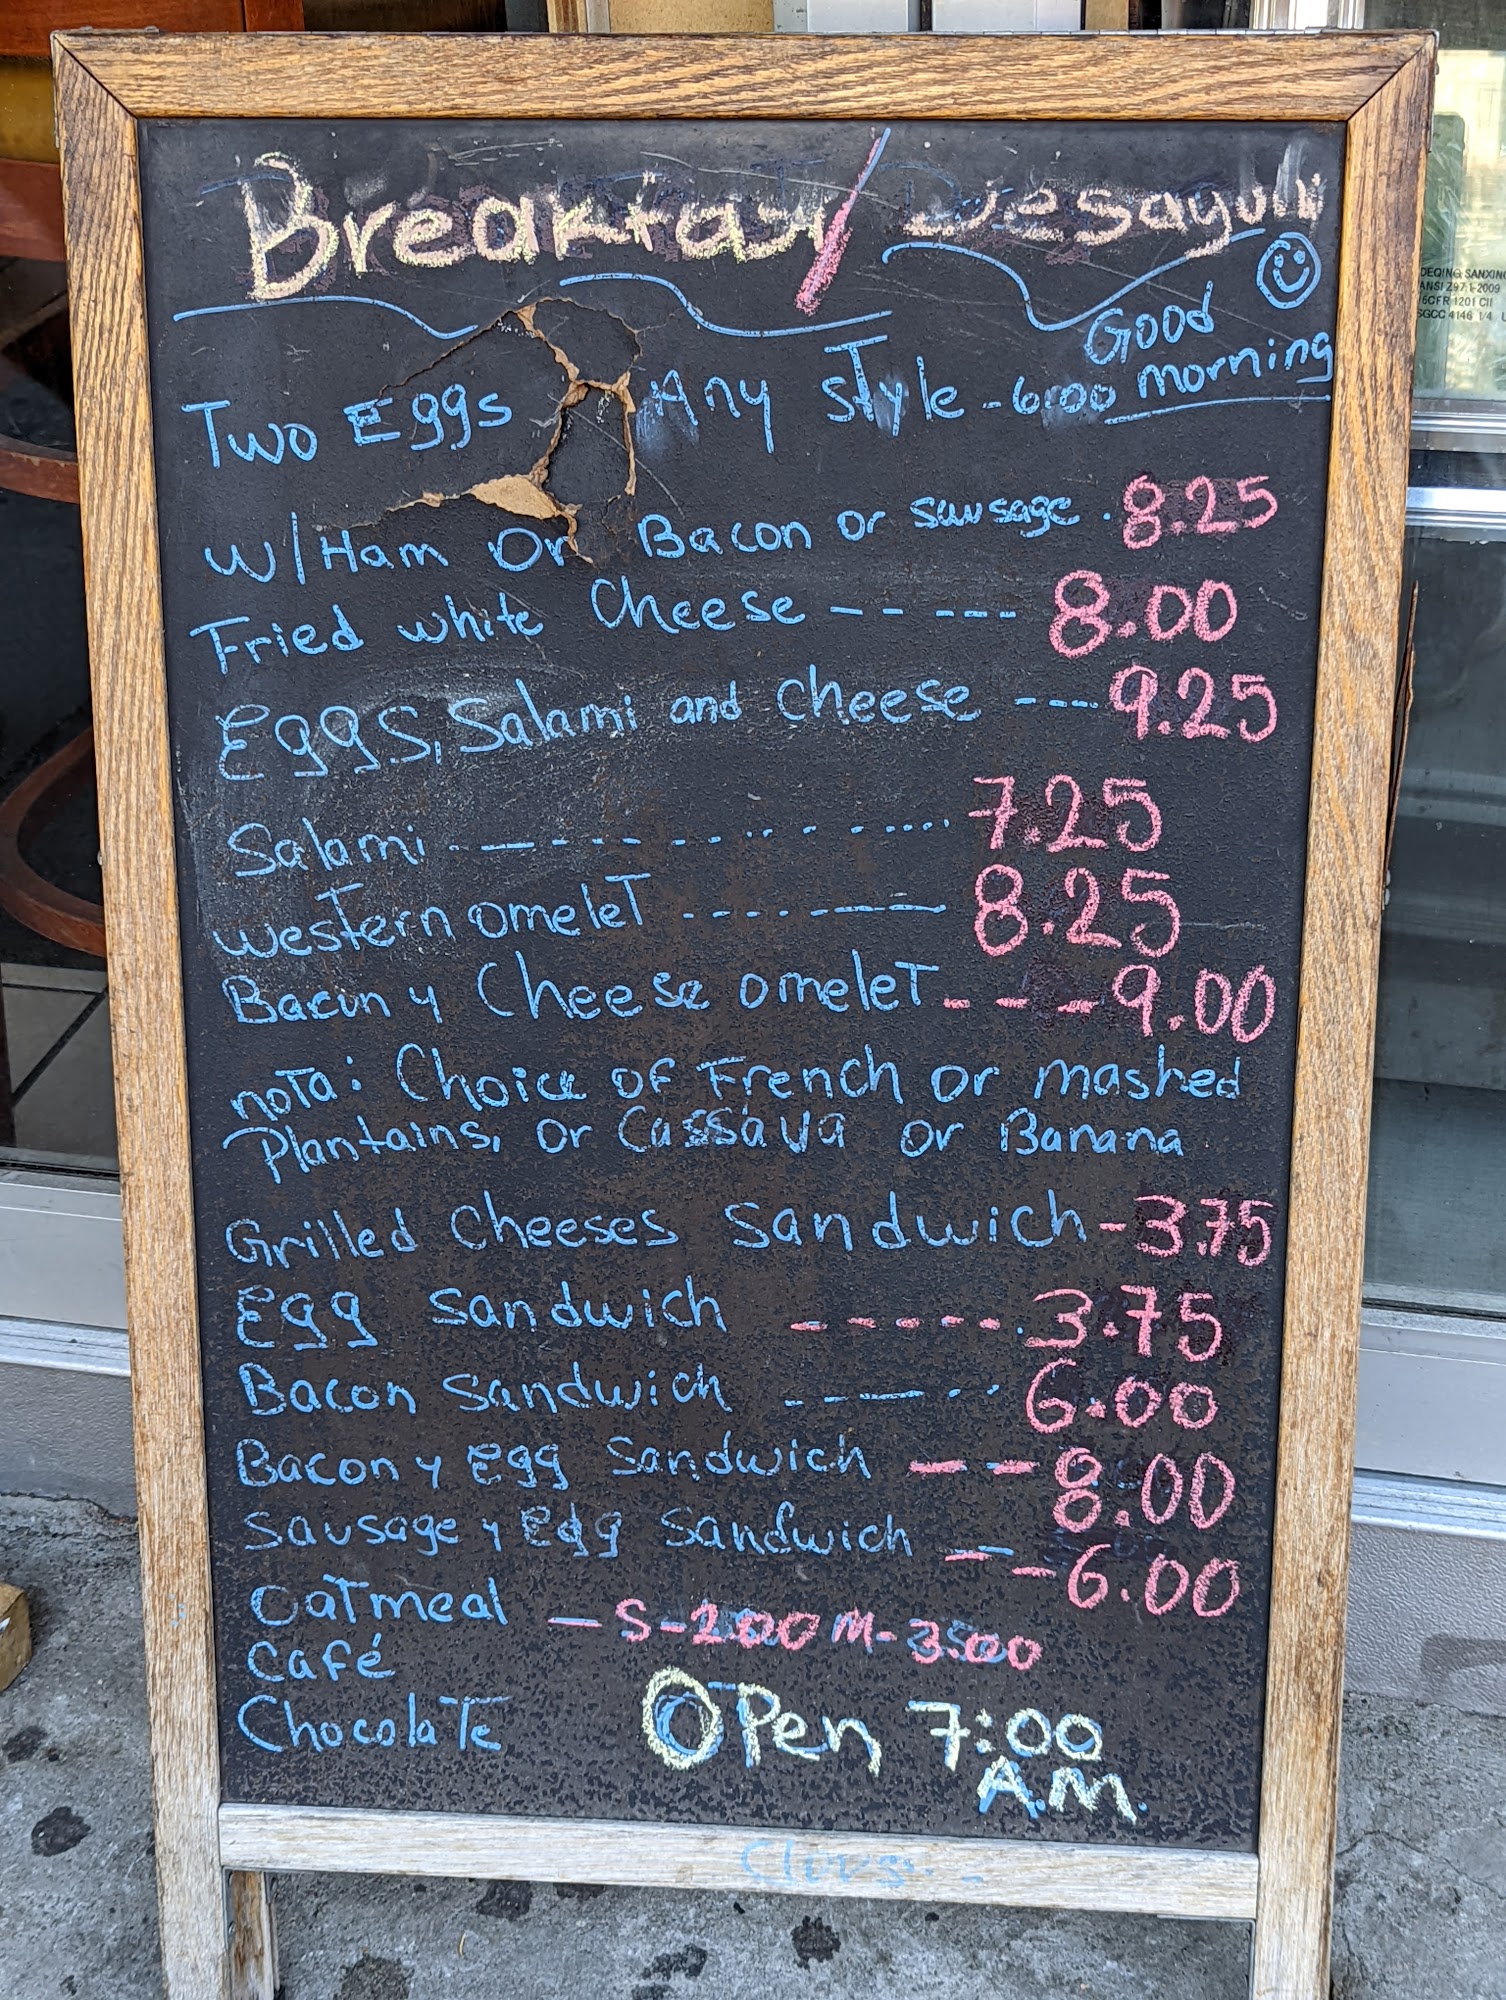 Breakfast / Desayuno
Good
morning
Two Eggs Any Style - 6.00
w/Ham Or Bacon or sausage . 8.25
Fried white Cheese -- --- 8.00
Eggs, Salami and cheese ---- 9.25
Salami ---------- 7.25
western omeleT ------- 8.25
Bacon y Cheese omeleT - - - 9.00
noTa: Choice OF French or mashed
Plantains, or Cassava or Banana
Grilled Cheeses Sandwich - 3.75
Egg Sandwich ------ 3.75
Bacon Sandwich ----- 6.00
Bacon y Egg Sandwich - - - 8.00
Sausage y Egg Sandwich - - - 6.00
OaTmeal - S - 2.00 M - 3.00
Café
ChocolaTe
OPen 7:00
A.M.
DEQING SANXING
ANSI Z97.1-2009
16CFR 1201 CII
SGCC 4146 1/4